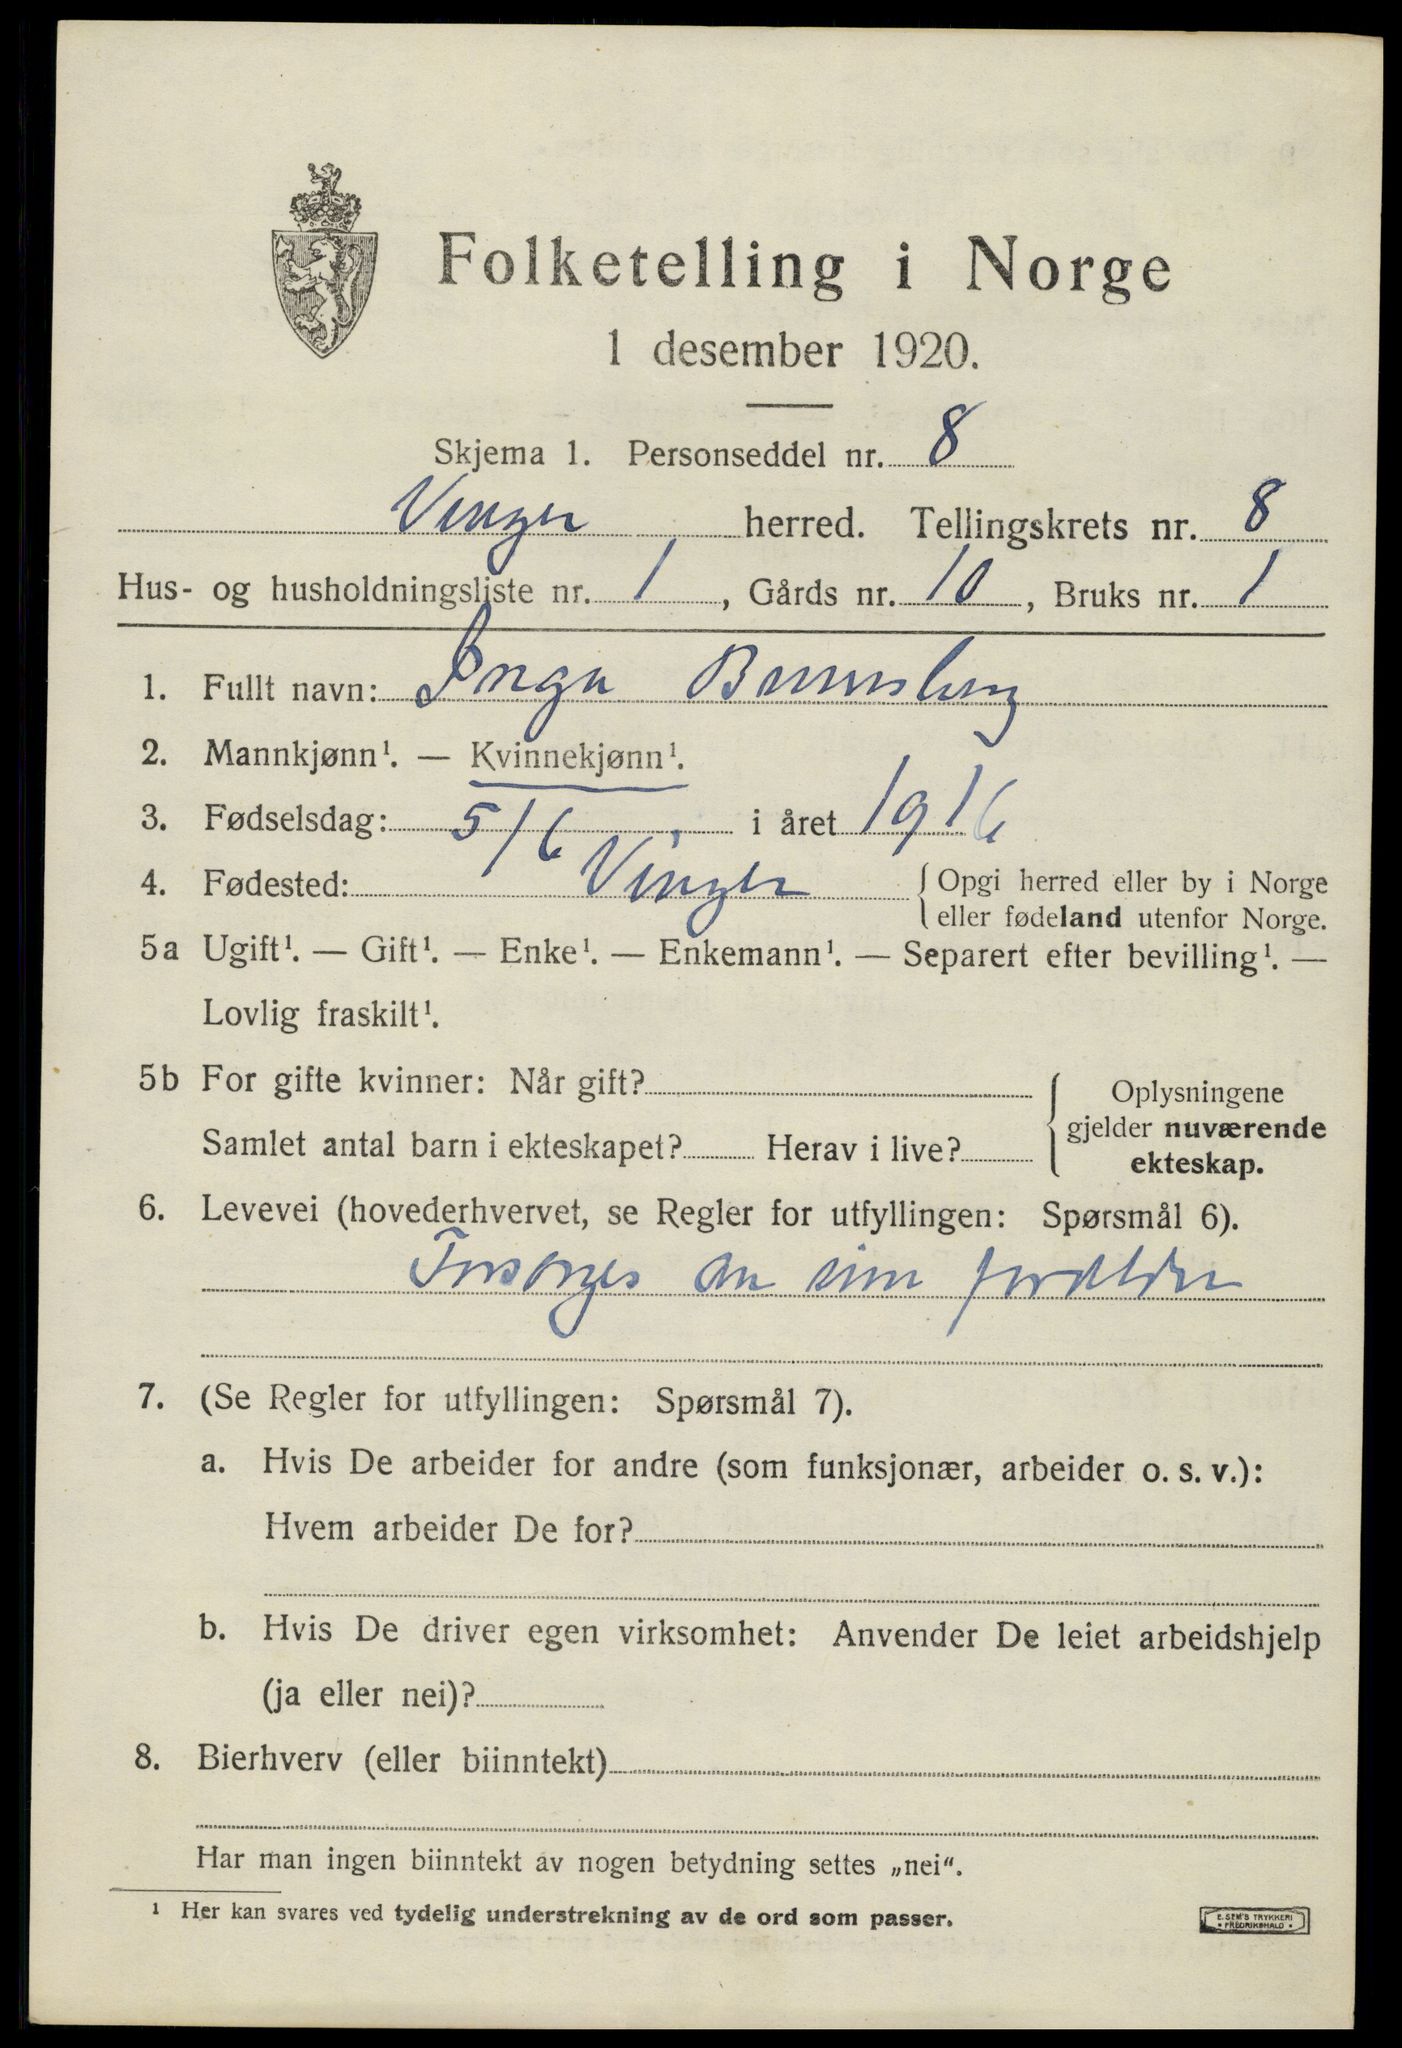 Folketelling i Norge
1 desember 1920.
Skjema 1. Personseddel nr. 8
Vinger herred. Tellingskrets nr. 8
Hus- og husholdningsliste nr. 1, Gårds nr. 10, Bruks nr. 1
1. Fullt navn: Inga
2. Mannkjønn¹. — Kvinnekjønn¹.
3. Fødselsdag: 5/6 i året 1916
4. Fødested: Vinger {Opgi herred eller by i Norge
eller fødeland utenfor Norge.
5a Ugift¹. — Gift¹. — Enke¹. — Enkemann¹. — Separert efter bevilling¹. —
Lovlig fraskilt¹.
5b For gifte kvinner: Når gift?
Samlet antal barn i ekteskapet? Herav i live?
{Oplysningene
gjelder nuværende
ekteskap.
6. Levevei (hovederhvervet, se Regler for utfyllingen: Spørsmål 6).
Forsørges av sine forældre
7. (Se Regler for utfyllingen: Spørsmål 7).
a. Hvis De arbeider for andre (som funksjonær, arbeider o. s. v.):
Hvem arbeider De for?
b. Hvis De driver egen virksomhet: Anvender De leiet arbeidshjelp
(ja eller nei)?
8. Bierhverv (eller biinntekt)
Har man ingen biinntekt av nogen betydning settes „nei“.
¹ Her kan svares ved tydelig understrekning av de ord som passer.
E. SEM'S TRYKKERI
• FREDRIKSHALD •